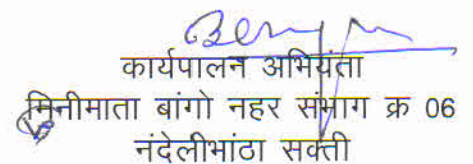 कार्यपालन अभियंता
मिनीमाता बांगो नहर संभाग क्र 06
नंदेलीभांठा सक्ती